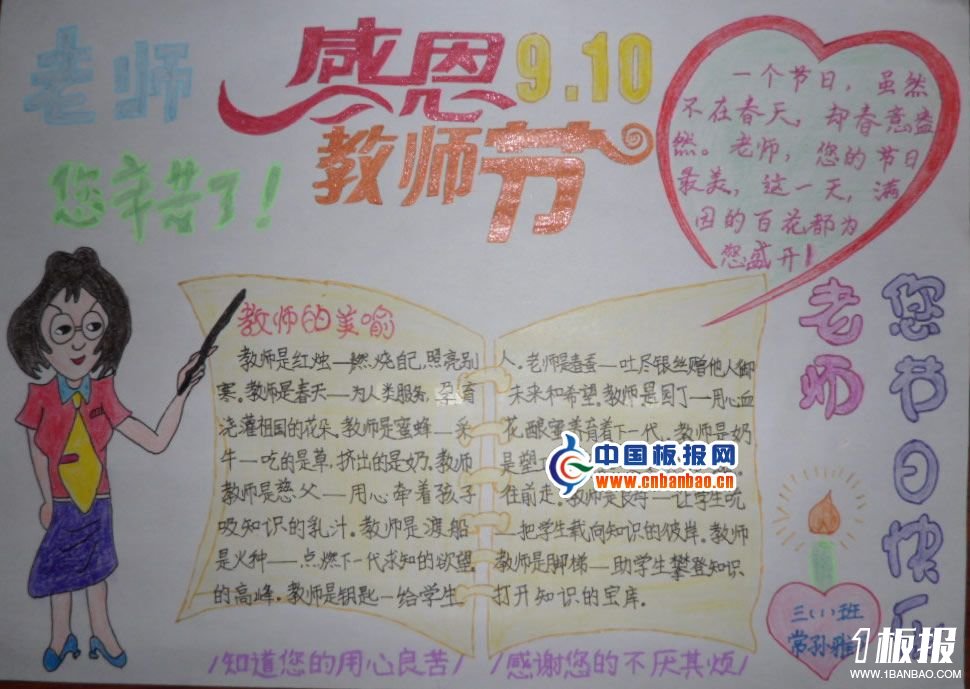 老师
您辛苦了！
感恩 9.10
教师节
一个节日，虽然
不在春天，却春意盎
然。老师，您的节日
最美，这一天，满
园的百花都为
您盛开！
教师的美喻
教师是红烛—燃烧自己，照亮别人。老师是春蚕—吐尽银丝赠他人御
寒。教师是春天—为人类服务，孕育未来和希望。教师是园丁—用心血
浇灌祖国的花朵。教师是蜜蜂—采花酿蜜养育着下一代。教师是奶
牛—吃的是草，挤出的是奶。教师是塑
教师是慈父—用心牵着孩子往前走。教师是良母—让学生吮
吸知识的乳汁。教师是渡船—把学生载向知识的彼岸。教师
是火种——点燃下一代求知的欲望教师是脚梯——助学生攀登知识
的高峰。教师是钥匙—给学生打开知识的宝库。
老师
您节日快乐
三(1)班
常孙雅
知道您的用心良苦
感谢您的不厌其烦
中国板报网
www.cnbanbao.cn
1板报
WWW.1BANBAO.COM